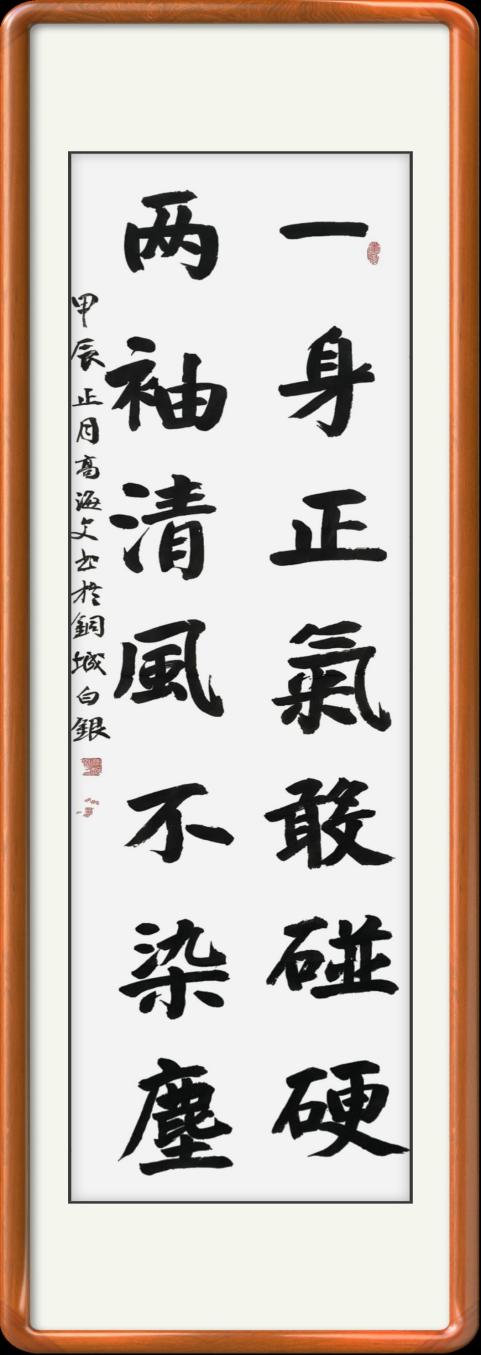 一身正氣敢碰硬
两袖清風不染塵
甲辰正月高海文书於銅城白銀